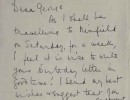 Dear George
As I shall be
travelling to Menfield
on Saturday, for a week,
I feel it is wise to write
your birthday letter in
good time! I send my best
wishes & suggest that for